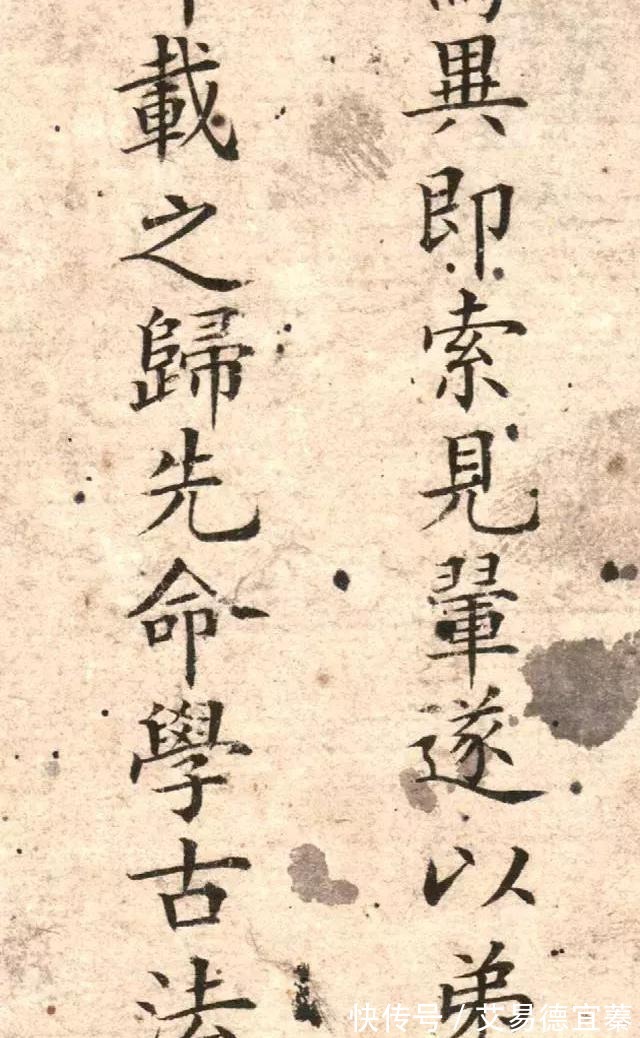 異即索見翬遂以弟
載之歸先命學古法
快传号/艾易德宜蓁